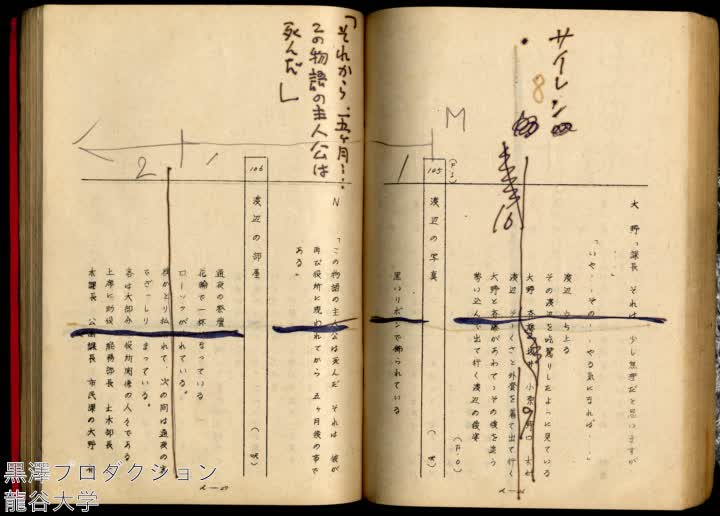 サイレン
8
16
大野「課長 それは 少し無理だと思いますが
「いや‥‥その‥‥やる気になれば‥‥」
渡辺 立ち上る
その渡辺を吃驚したように見ている
大野
渡辺 そそくさと外套を着て出て行く
大野と斎藤があわてゝその後を追う
勢い込んで出て行く渡辺の後姿
(F・O)
M
(F・I)
105
渡辺の写真
黒いリボンで飾られている
1
「それから、五ヶ月…
この物語の主人公は
死んだ」
N 「この物語の主人公は死んだ それは 彼が
再び役所に現われてから 五ヶ月後の事で
ある」
106
渡辺の部屋
通夜の祭壇
花輪で一杯になっている
ローソクが
取り払われて、次の間は通夜の
でぎっしり つまっている。
客は大部分 役所関係の人々である
上席に助役 総務部長 土木部長
木課長 公園課長 市民課の大野
1
2
黒澤プロダクション
龍谷大学